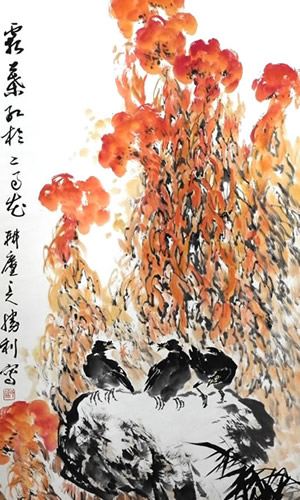 霜葉红於二月花 耕廬 勝利寫